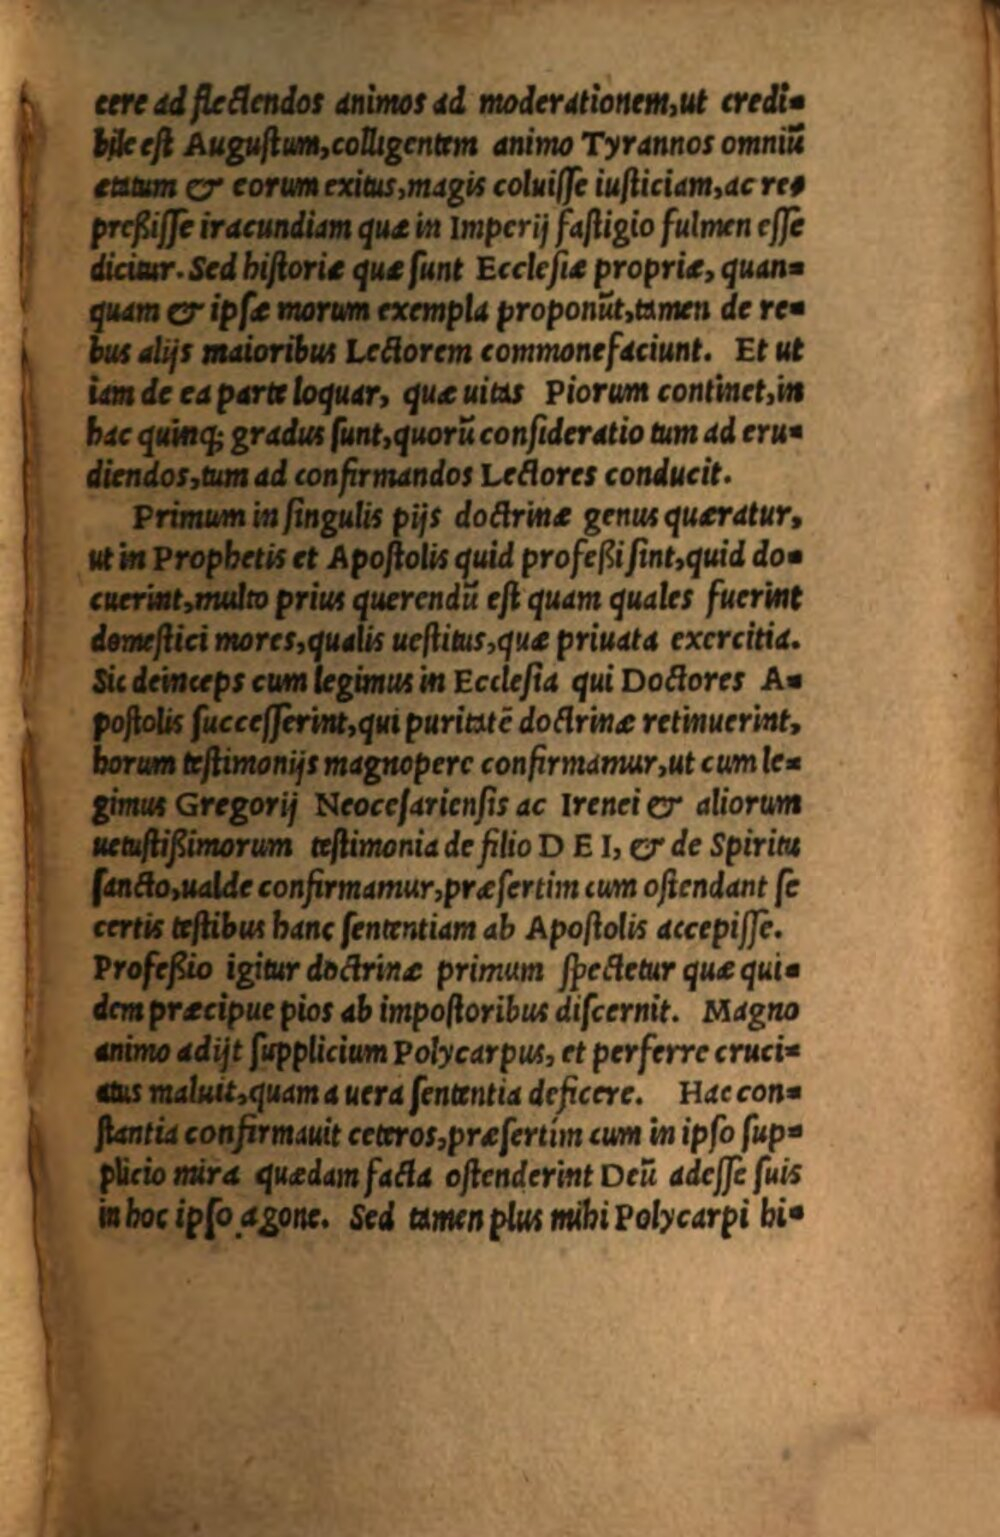 cere ad flectendos animos ad moderationem, ut credi-
bile est Augustum, colligentem animo Tyrannos omniū
etatum & eorum exitus, magis coluisse iusticiam, ac re-
preßisse iracundiam quæ in Imperij fastigio fulmen esse
dicitur. Sed historiæ quæ sunt Ecclesiæ propriæ, quan-
quam & ipsæ morum exempla proponūt, tamen de re-
bus alijs maioribus Lectorem commonefaciunt. Et ut
iam de ea parte loquar, quæ uitas Piorum continet, in
hac quinq; gradus sunt, quorū consideratio tum ad eru-
diendos, tum ad confirmandos Lectores conducit.
Primum in singulis pijs doctrinæ genus quæratur,
ut in Prophetis et Apostolis quid profeßi sint, quid do-
cuerint, multo prius querendū est quam quales fuerint
domestici mores, qualis uestitus, quæ priuata exercitia.
Sic deinceps cum legimus in Ecclesia qui Doctores A-
postolis successerint, qui puritatē doctrinæ retinuerint,
horum testimonijs magnopere confirmamur, ut cum le-
gimus Gregorij Neocesariensis ac Irenei & aliorum
uetustißimorum testimonia de filio D E I, & de Spiritu
sancto, ualde confirmamur, præsertim cum ostendant se
certis testibus hanc sententiam ab Apostolis accepisse.
Profeßio igitur doctrinæ primum spectetur quæ qui-
dem præcipue pios ab impostoribus discernit. Magno
animo adijt supplicium Polycarpus, et perferre cruci-
atus maluit, quam a uera sententia deficere. Hac con-
stantia confirmauit ceteros, præsertim cum in ipso sup-
plicio mira quædam facta ostenderint Deū adesse suis
in hoc ipso agone. Sed tamen plus mihi Polycarpi hi-